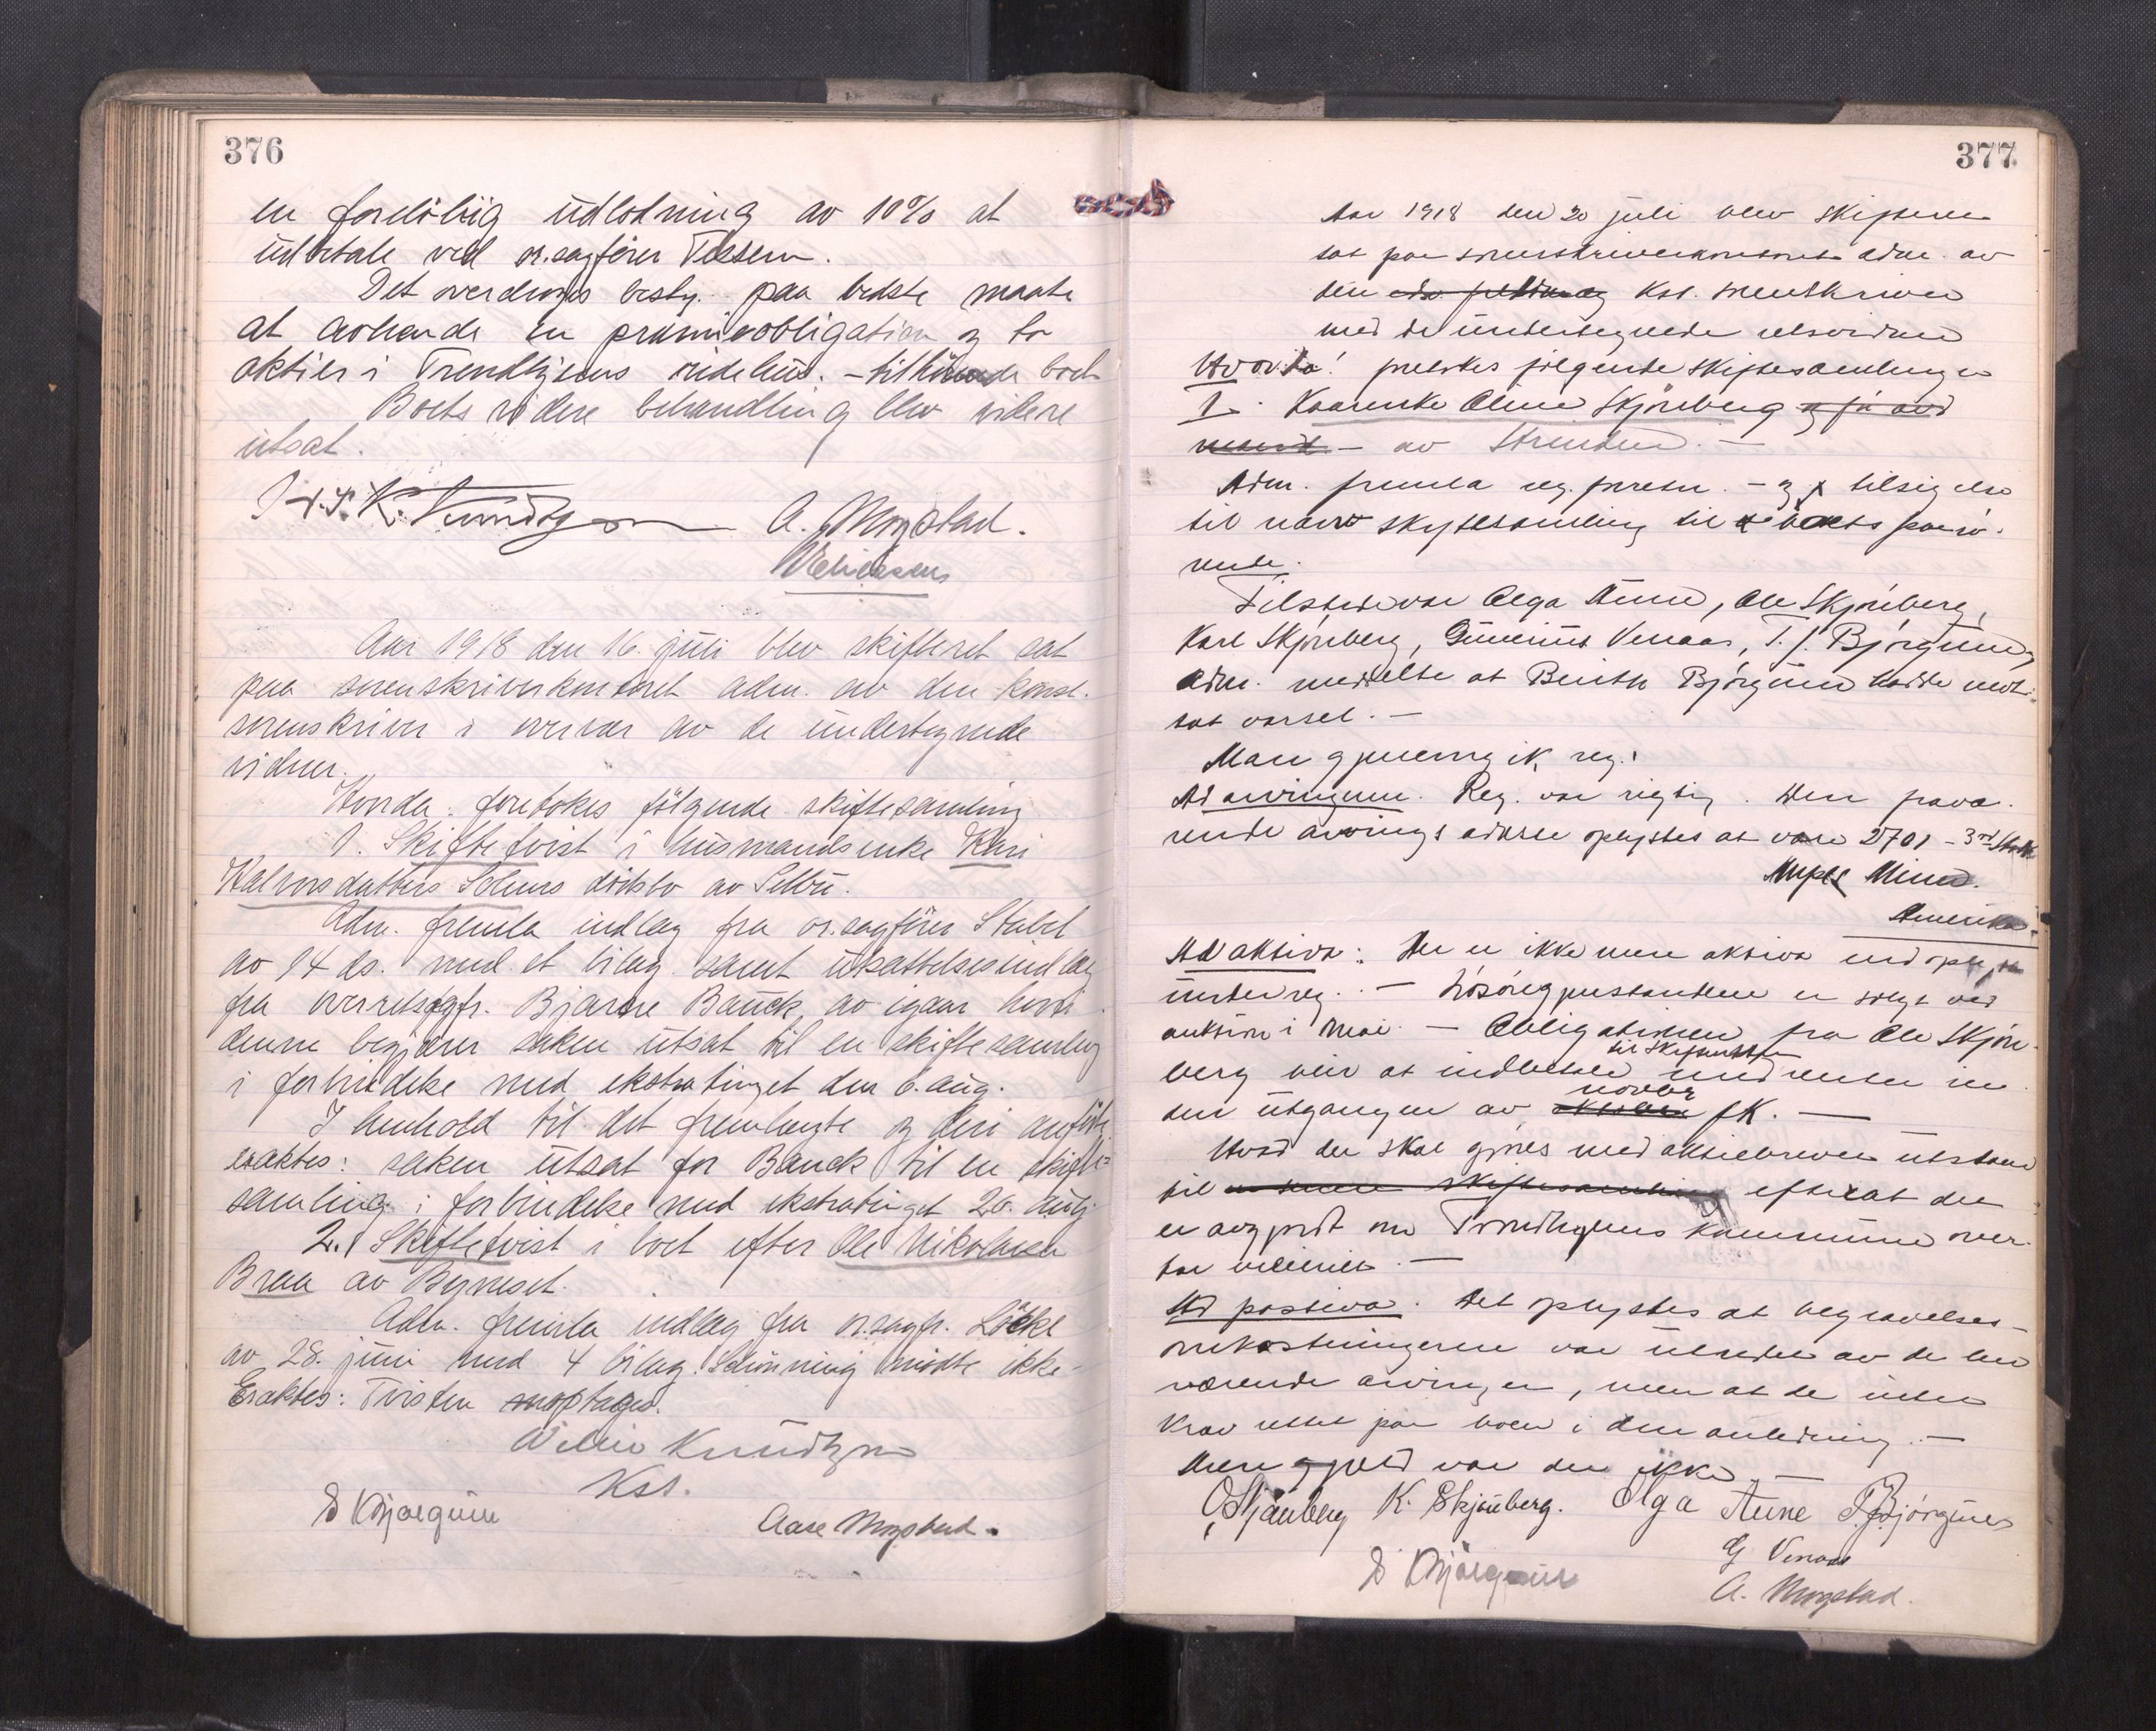 376
en foreløbig udlodning av 10% at
udbetale ved or.sagfører Tessem.
Det overdroges besty. paa bedste maate
at avhænde en præmieobligation og to
aktier i Trondhjems - tilhørende boet.
Boets videre behandling blev videre
utsat.
A. Mogstad.
Aar 1918 den 16. juli blev skifteret sat
paa sorenskriverkontoret adm. av den konst.
sorenskriver i overvær av de undertegnede
vidner.
Hvorda: foretokes følgende skiftesamling
1. Skiftetvist i husmandsenke Kari
Halvorsdatters Solems dødsbo av Selbu.
Adm. fremla indlæg fra or.sagfører Stabel
av 14 ds. med et bilag samt utsættelsesindlæg
fra overretssagfr. Bjarne Bauck av igaar hvori
denne begjærer saken utsat til en skiftesamling
i forbindelse med ekstratinget den 6. aug.
I henhold til det fremlagte og deri anførte
eraktes: saken utsat for Bauck til en skifte-
samling i forbindelse med ekstratinget
2. Skiftetvist i boet efter Ole Nikolaisen
Braa av Bynesset.
Adm. fremla indlæg fra or.sagfr. Løkke
av 28. juni med 4 bilag. Schønning mødte ikke -
Eraktes: Tvisten optages.
Kst.
Aase Mogstad.
377
Aar 1918 den 20 juli blev skifteret
sat paa sorenskriverkontoret adm. av
den kst. sorenskriver
med de undertegnede retsvidner
Hvorda! foretokes følgende skiftesamlinger
1. Karenke Oline Skjønberg og fø avd
mand - av Strinden. -
Adm. fremla reg. forretn. - og tilsigelse
til nærv skiftesamling til boets paarø-
rende.
Tilstede var Olga Aune, Ole Skjønberg,
Karl Skjønberg, Gunerius Venaas, T. J. Bjørgum,
Adm. meddelte at Bjørgum hadde mot-
tat varsel. -
Man gjennemgik reg:
Ad arvingene. Reg. var rigtig. Den fravæ-
rende arvings adresse oplystes at være 2701 - 3rd
Mupls Minn.
Amerika.
Ad aktiva: Der er ikke mere aktiva end oplyst
under reg. - Løsøregjenstandene er solgt ved
auktion i mai. - Obligationen fra Ole Skjøn-
berg blir at indbetale til skifteretten med renter in-
den utgangen av novbr fk. -
Hvad der skal gjøres med aktiebrevene utstaar
til en senere skiftesamling efterat det
er avgjort om Trondhjems kommune over-
tar
Ad passiva. Det oplystes at begravelses-
omkostningerne var utredet av de her
værende arvinger, men at de inten
krav rettet paa boet i den anledning. -
Mere gjæld var der ikke. -
O. Skjønberg K. Skjønberg. Olga Aune T. J. Bjørgum
G Venaas
A. Mogstad.